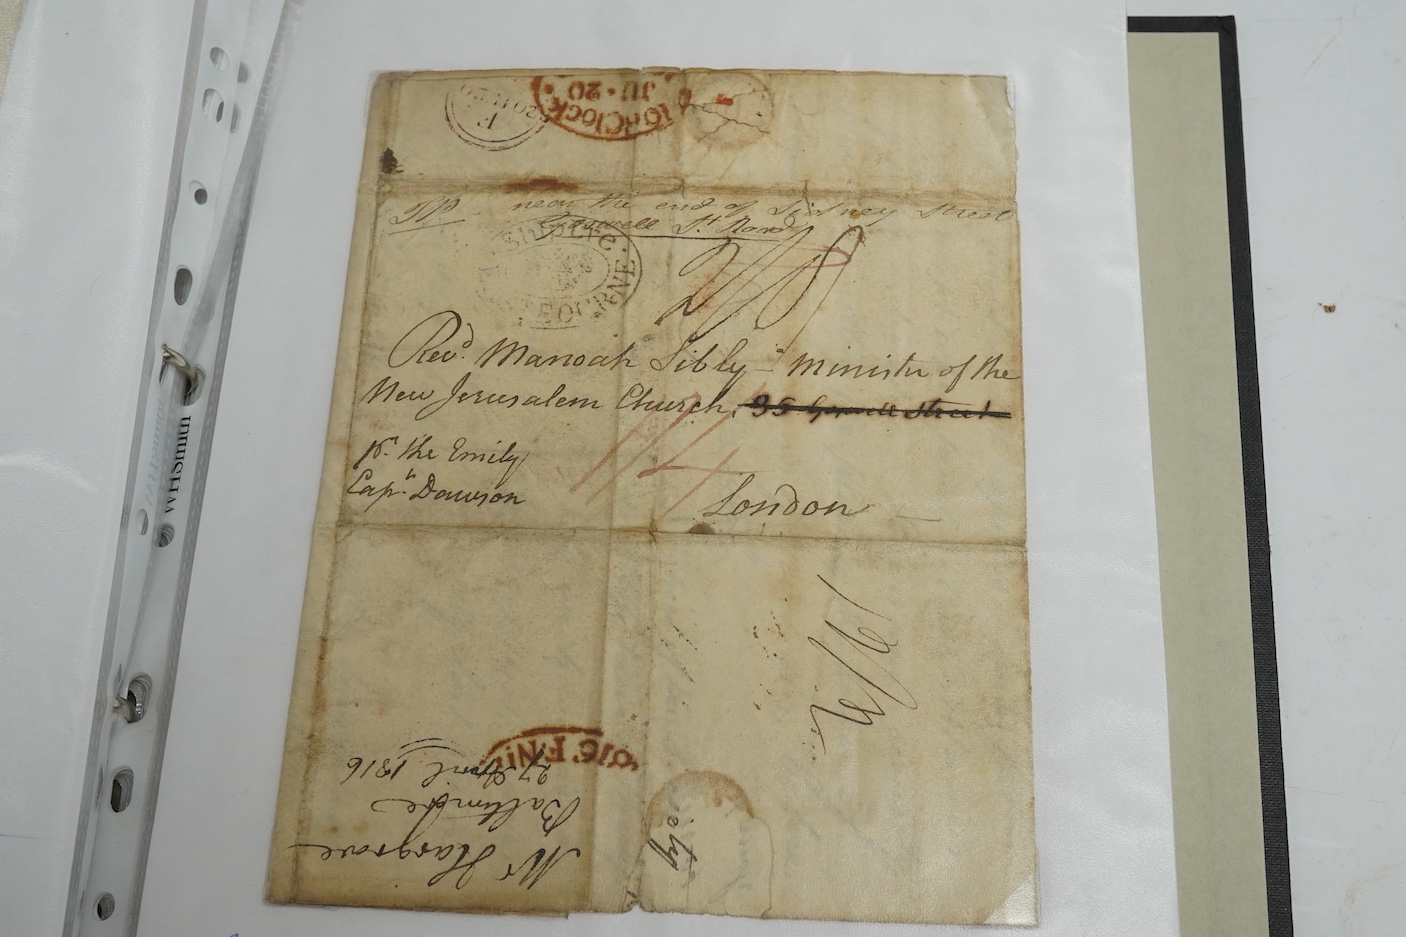 10 o'Clock
JU · 20
F
20
near the end of Sidney Street
Goswell St. Road
Ship Lre
EASTBOURNE
2/8
Revd. Manoah Sibly - Minister of the
New Jerusalem Church, 35 Goswell Street
pr. the Emily
Capn. Dawson
1/4
London
Mr Hargrove
Baltimore
27 April 1816
WHSmith